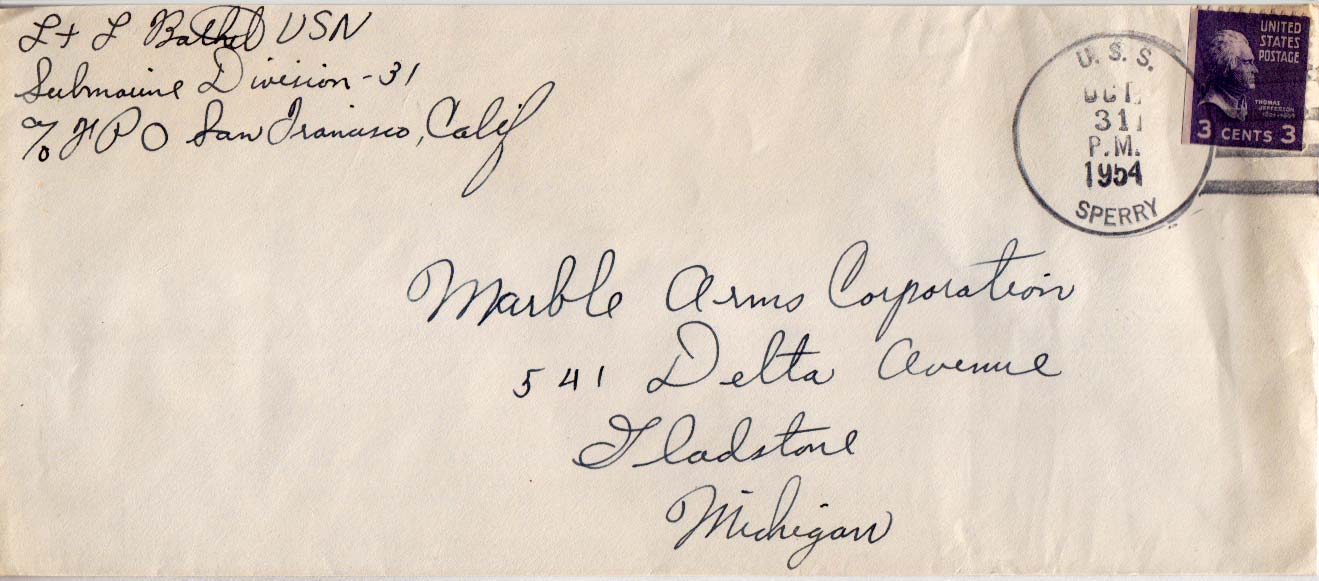 Lt L Bathel USN
Submarine Division-31
℅ FPO San Francisco, Calif
U.S.S.
OCT.
31
P.M.
1954
SPERRY
UNITED
STATES
POSTAGE
THOMAS
JEFFERSON
3 CENTS 3
Marble Arms Corporation
541 Delta Avenue
Gladstone
Michigan